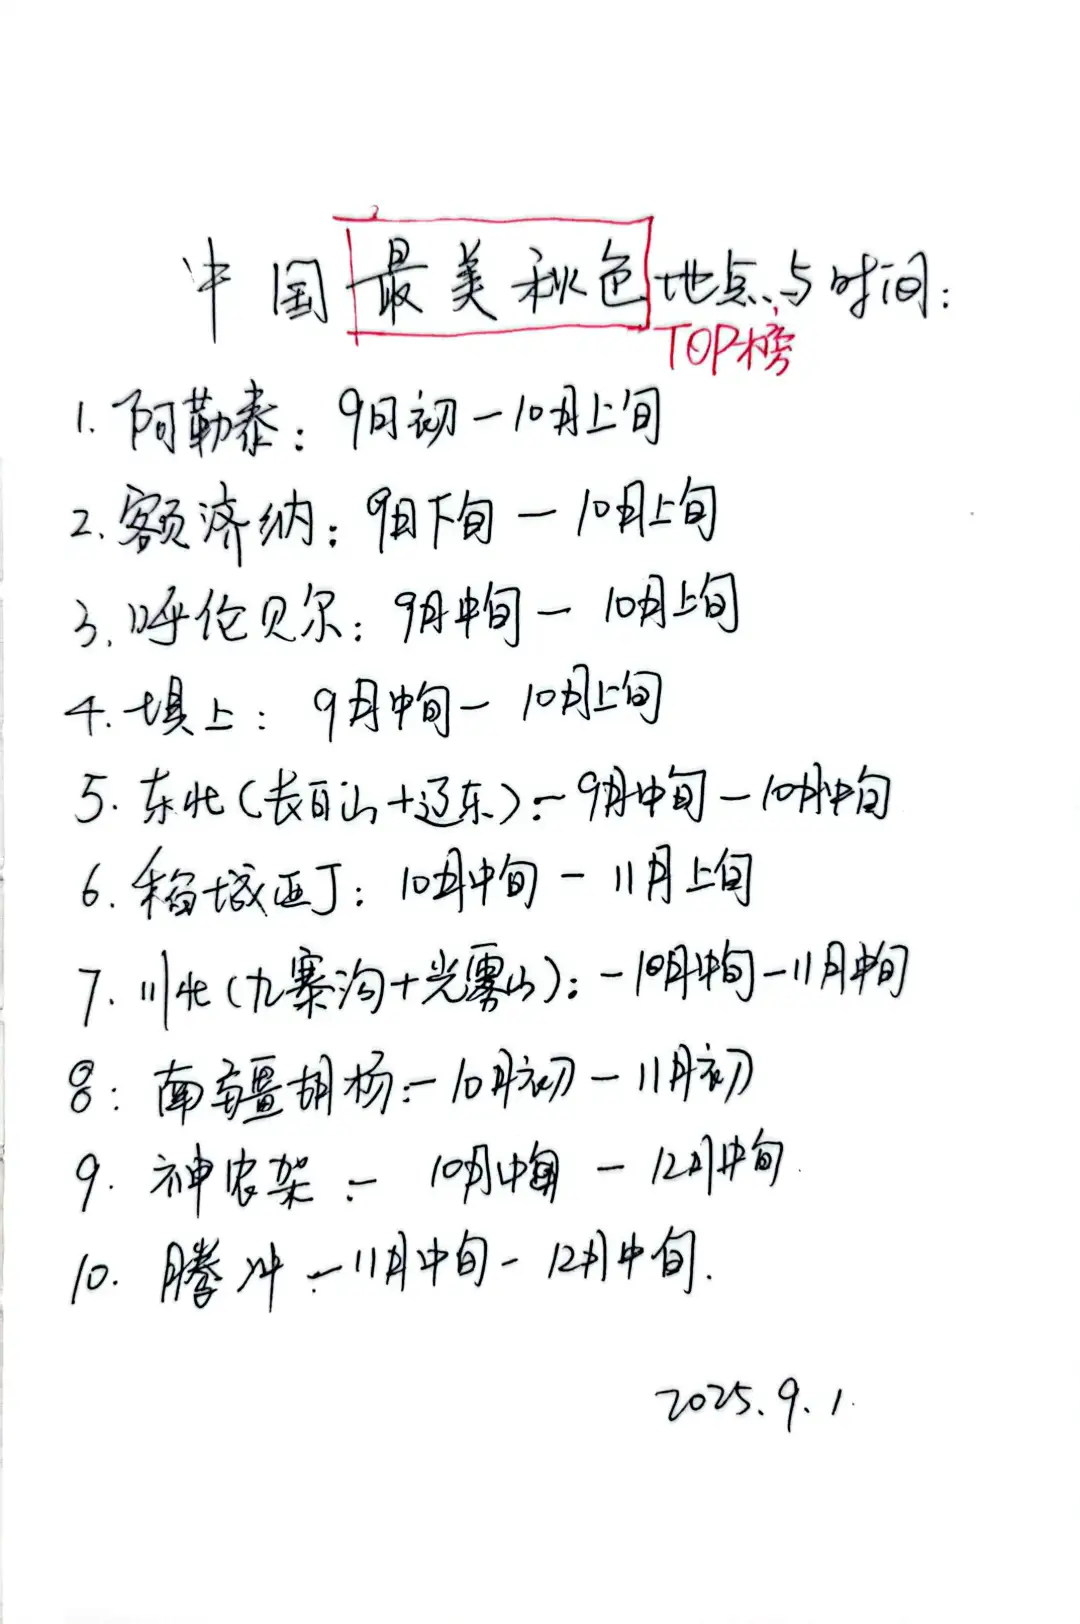 中国最美秋色地点与时间:
TOP榜
1. 阿勒泰: 9月初-10月上旬
2. 额济纳: 9月下旬-10月上旬
3. 呼伦贝尔: 9月中旬-10月上旬
4. 坝上: 9月中旬-10月上旬
5. 东北(长白山+辽东):-9月中旬-10月中旬
6. 稻城亚丁: 10月中旬-11月上旬
7. 川北(九寨沟+光雾山):-10月中旬-11月中旬
8: 南疆胡杨:-10月初-11月初
9. 神农架:- 10月中旬-12月中旬
10. 腾冲:-11月中旬-12月中旬.
2025.9.1